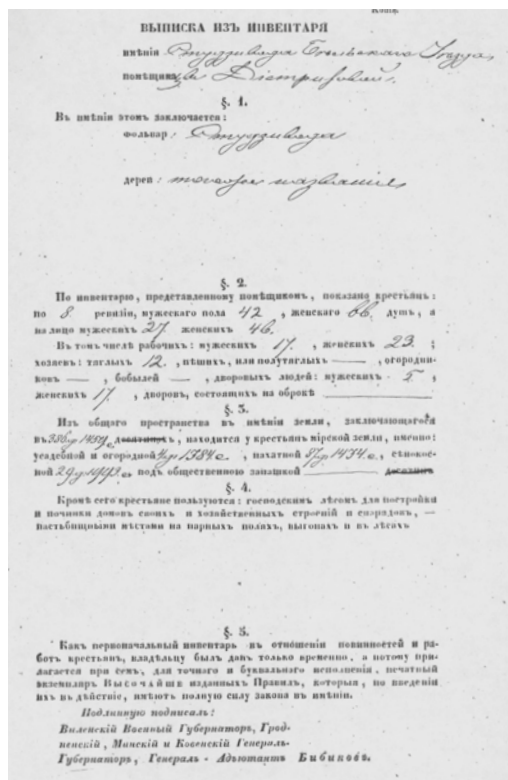 ВЫПИСКА ИЗЪ ИНВЕНТАРЯ
имѣнія Студзивода Бѣльскаго Уѣзда,
помѣщика
§. 1.
Въ имѣніи этомъ заключается:
фольвар: Студзивода
дерев: тогоже названія
§. 2.
По инвентарю, представленному помѣщикомъ, показано крестьянъ:
по 8. ревизіи, мужескаго пола 42, женскаго 66. душъ, а
на лицо мужескихъ 27. женскихъ 46.
Въ томъ числѣ рабочихъ: мужескихъ 17., женскихъ 23.;
хозяевъ: тяглыхъ 12., пѣшихъ, или полутяглыхъ —, огородни-
ковъ —, бобылей —, дворовыхъ людей: мужескихъ - 5.,
женскихъ 17., дворовъ, состоящихъ на оброкѣ
§. 3.
Изъ общаго пространства въ имѣніи земли, заключающагося
въ десятинахъ, находится у крестьянъ мірской земли, именно:
усадебной и огородной, пахатной, сѣнокос-
ной подъ общественною запашкой десятинъ
§. 4.
Кромѣ сего крестьяне пользуются: господскимъ лѣсомъ для постройки
и починки домовъ своихъ и хозяйственныхъ строеній и снарядовъ, —
пастьбищными мѣстами на паровыхъ поляхъ, выгонахъ и въ лѣсахъ
§. 5.
Какъ первоначальный инвентарь въ отношеніи повинностей и ра-
ботъ крестьянъ, владѣльцу былъ данъ только временно, а потому при-
лагается при семъ, для точнаго и буквальнаго исполненія, печатный
экземпляръ Высочайше изданныхъ Правилъ, которыя, по введеніи
ихъ въ дѣйствіе, имѣютъ полную силу закона въ имѣніи.
Подлинную подписалъ:
Виленскій Военный Губернаторъ, Грод-
ненскій, Минскій и Ковенскій Генералъ-
Губернаторъ, Генералъ-Адъютантъ Бибиковъ.